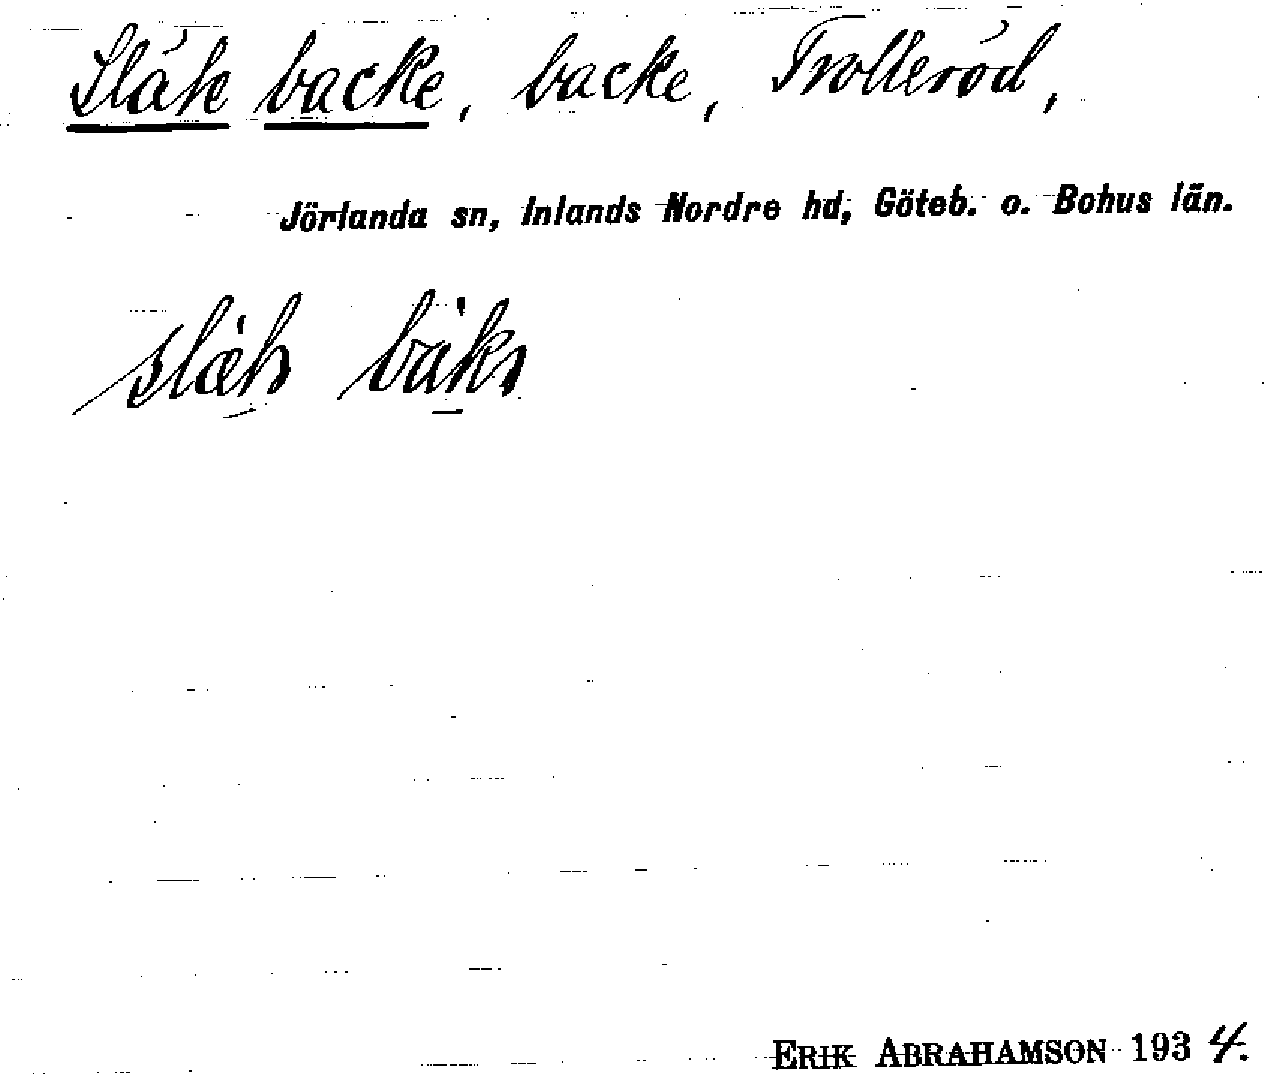 Släte backe, backe, Trolleröd,
Jörlanda sn, Inlands Nordre hd, Göteb. o. Bohus län.
ERIK ABRAHAMSON 1934.